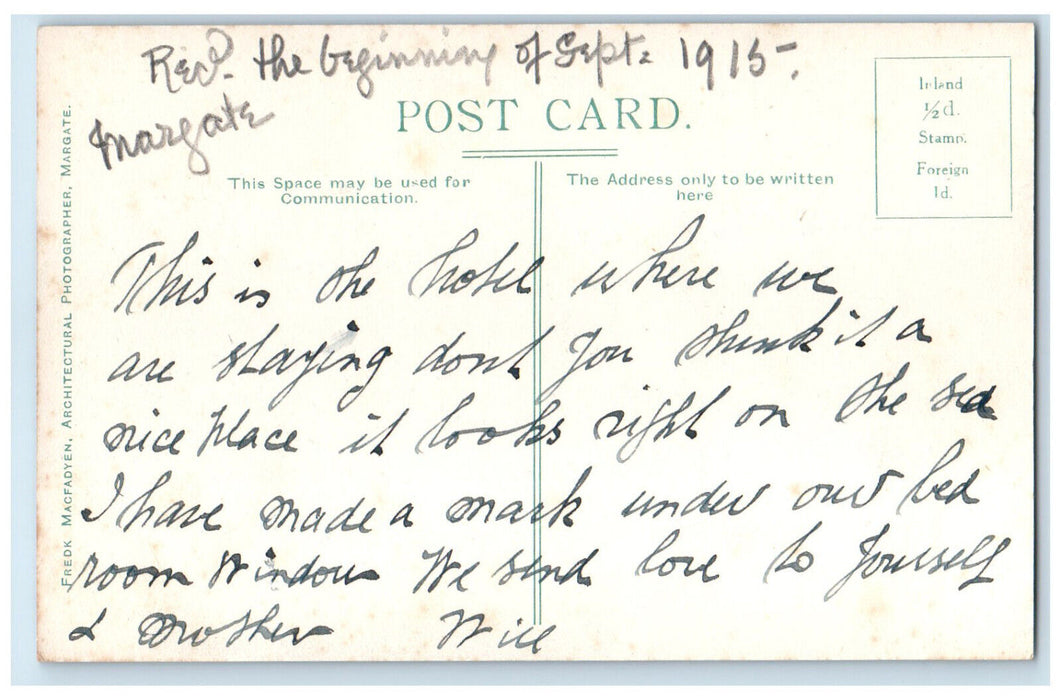 Recd. the beginning of Sept: 1915.
Margate
POST CARD.
Inland
½d.
Stamp.
Foreign
1d.
This Space may be used for
Communication.
The Address only to be written
here
FREDK MACFADYEN, ARCHITECTURAL PHOTOGRAPHER, MARGATE.
This is the hotel where we
are staying dont you think it a
nice place it looks right on the sea
I have made a mark under our bed
room window We send love to yourself
& mother Will